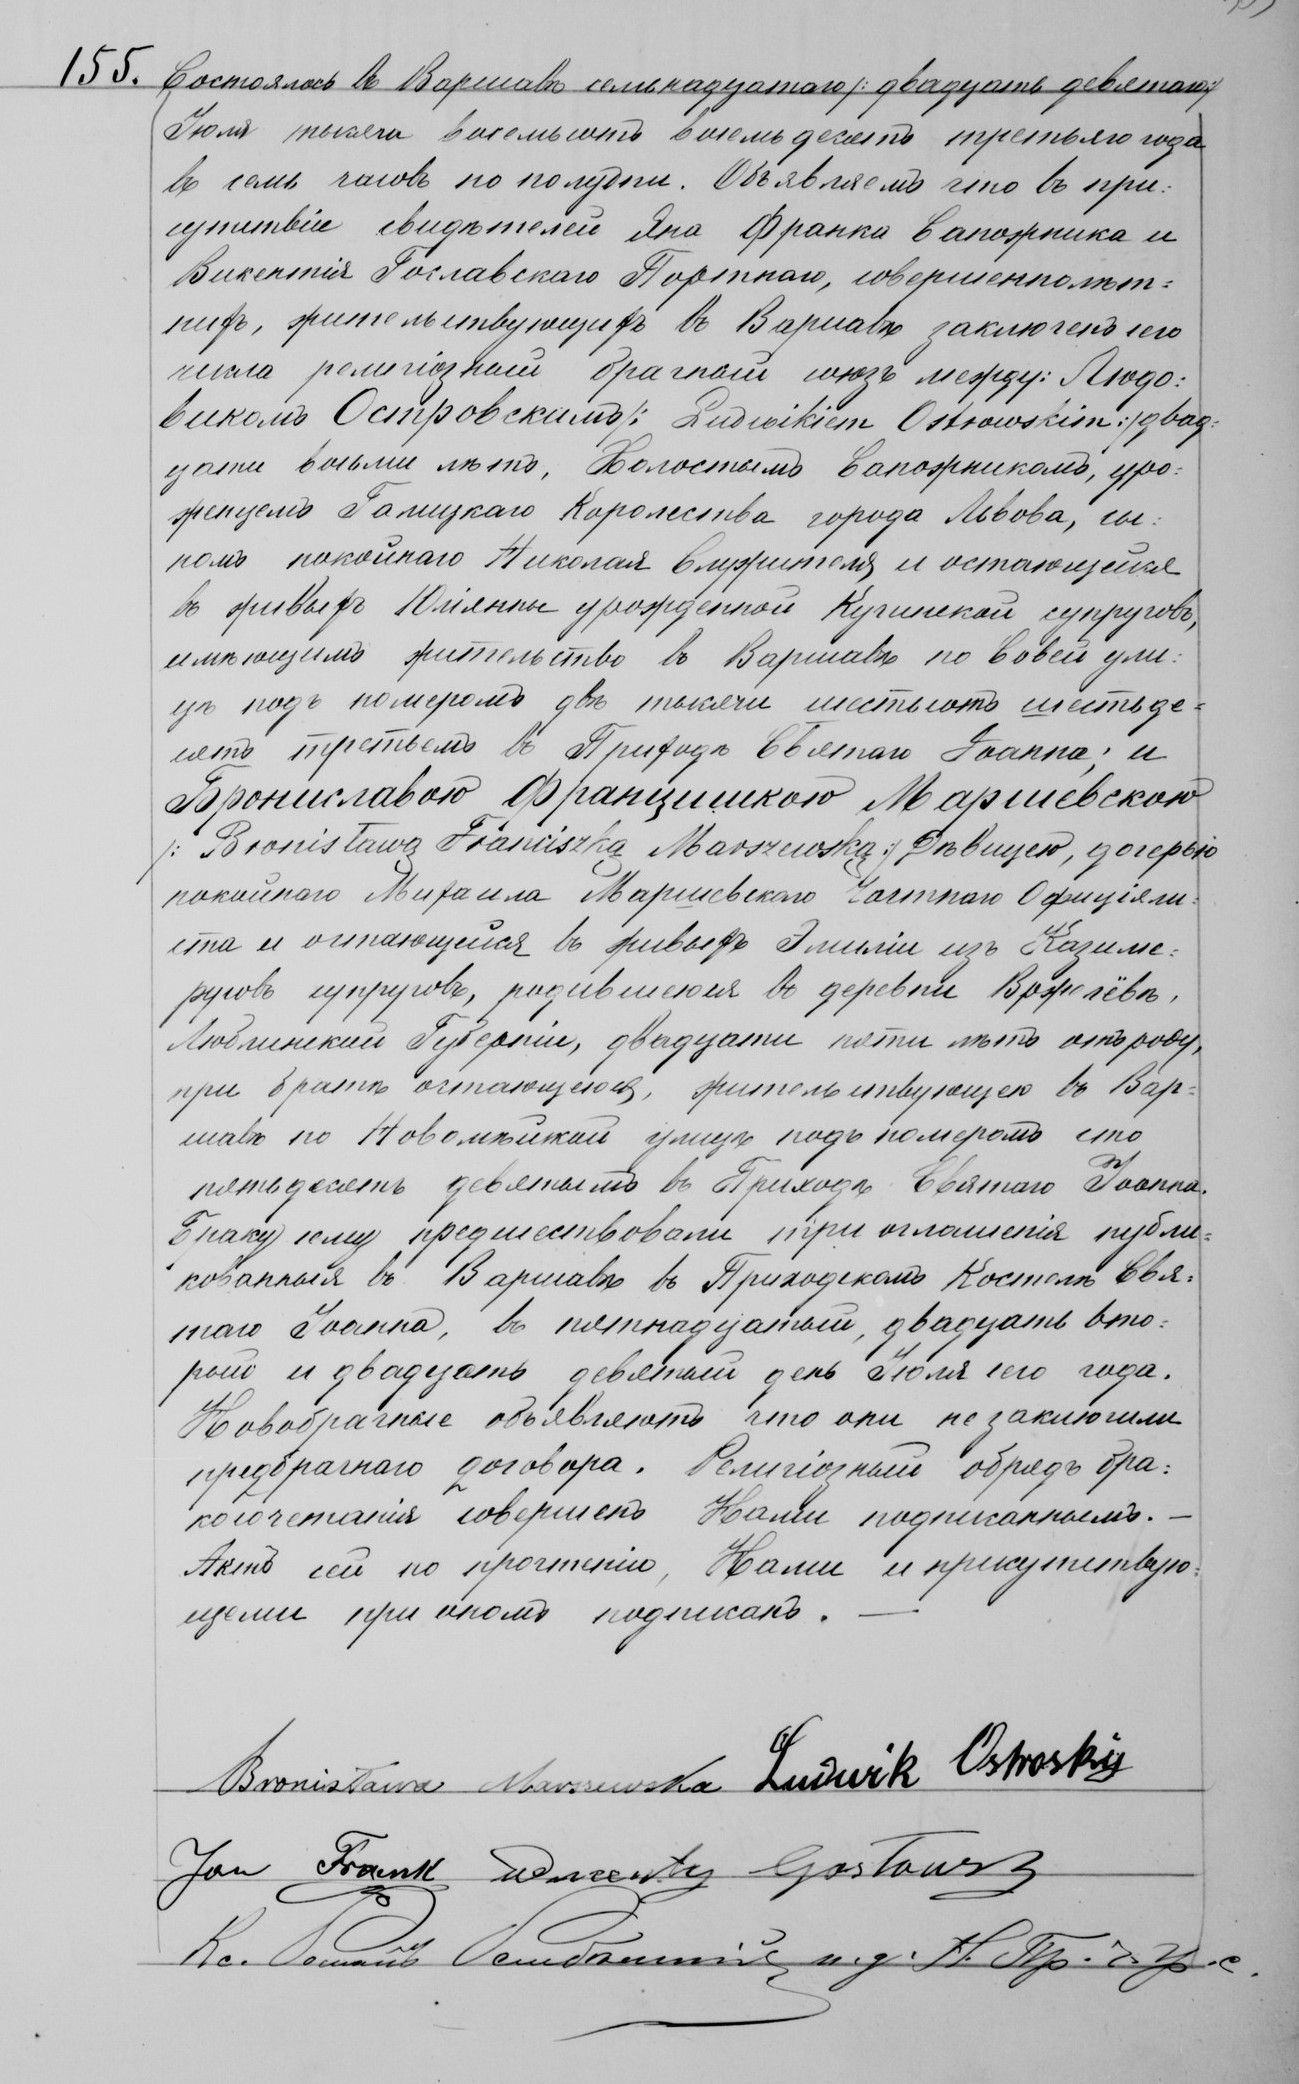 155. Состоялось въ Варшавѣ семьнадцатаго /: двадцать девятаго :/
Іюля тысяча восемьсотъ восемьдесятъ третьяго года
въ семь часовъ по полудни. Объявляемъ что въ при:
сутствіи свидѣтелей Яна Франка Сапожника и
Викентія Гославскаго Портнаго, совершеннолѣт=
нихъ, жительствующихъ въ Варшавѣ заключенъ сего
числа религіозный брачный союзъ между: Людо:
викомъ Островскимъ /: Ludwikiem Ostrowskim :/ двад:
цати восьми лѣтъ, Холостымъ Сапожникомъ, уро:
женцемъ Галицкаго Королества города Львова, сы:
номъ покойнаго Николая Служителя и остающейся
въ живыхъ Юліянны урожденной Кучинской супруговъ,
имѣющимъ жительство въ Варшавѣ по Совей ули:
цѣ подъ номеромъ двѣ тысячи шестьсотъ шестьде=
сятъ третьемъ въ Приходѣ Святаго Іоанна; и
Брониславою Францишкою Маршевскою
/: Bronisławą Franciszką Marszewską :/ Дѣвицею, дочерью
покойнаго Михаила Маршевскаго Частнаго Офиціяли:
ста и остающейся въ живыхъ Эмиліи изъ Казиме:
руковъ супруговъ, родившеюся въ деревни
Люблинской Губерніи, двадцати пяти лѣтъ отъ роду,
при братѣ остающеюся, жительствующею въ Вар=
шавѣ по Новомѣйской улицѣ подъ номеромъ сто
пятьдесятъ девятымъ въ Приходѣ Святаго Іоанна.
Браку сему предшествовали три оглашенія публи=
кованныя въ Варшавѣ въ Приходскомъ Костелѣ Свя:
таго Іоанна, въ пятнадцатый, двадцать вто:
рый и двадцать девятый день Іюля сего года.
Новобрачные объявляютъ что они не заключили
предбрачнаго договора. Религіозный обрядъ бра:
косочетанія совершенъ Нами подписаннымъ. —
Актъ сей по прочтеніи, Нами и присутствую:
щеми при ономъ подписанъ. —
Bronisława Marszewska Ludwik Ostroski
Jan Frank Wincenty Gosławski
Кс.